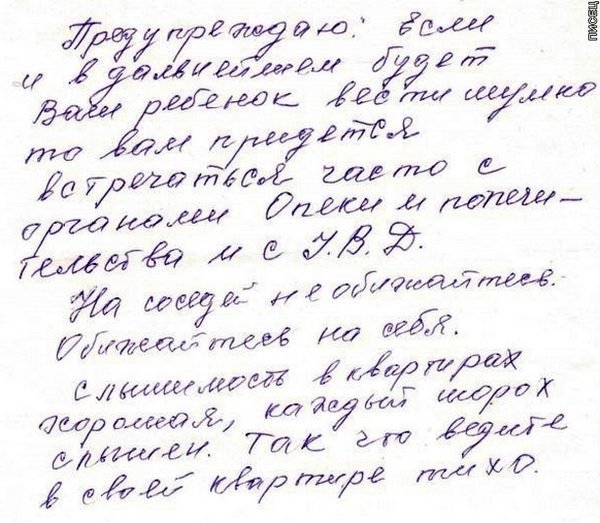 Предупреждаю: Если
и в дальнейшем будет
Ваш ребенок вести шумно
то вам придется
встречаться часто с
органами Опеки и попечи-
тельства и с У.В.Д.
На соседей не обижайтесь.
Обижайтесь на себя.
Слышимость в квартирах
хорошая, каждый шорох
слышен. Так что ведите
в своей квартире тихо.
ПИСЕЦ